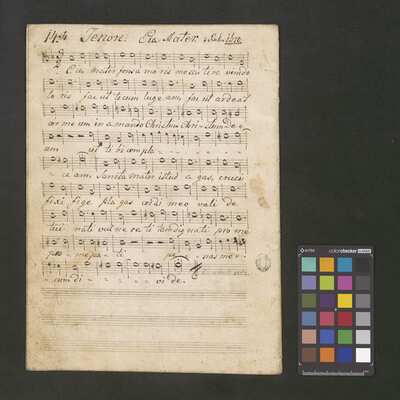 144 Tenore. Eia Mater
Eia mater fons a mo ris me sen ti re vim do
lo ris fac ut tecum luge am, fac ut ardeat
cor me um in a mando Christum Chri stum De
um ut si bi compla
ce am. Sancta mater istud a gas, cruci
fixi fige pla gas cordi meo vali de
tui nati vul ne ra ti tam dignati pro me
pro me pa ti pæ nas me
cum di vi de.
colorchecker